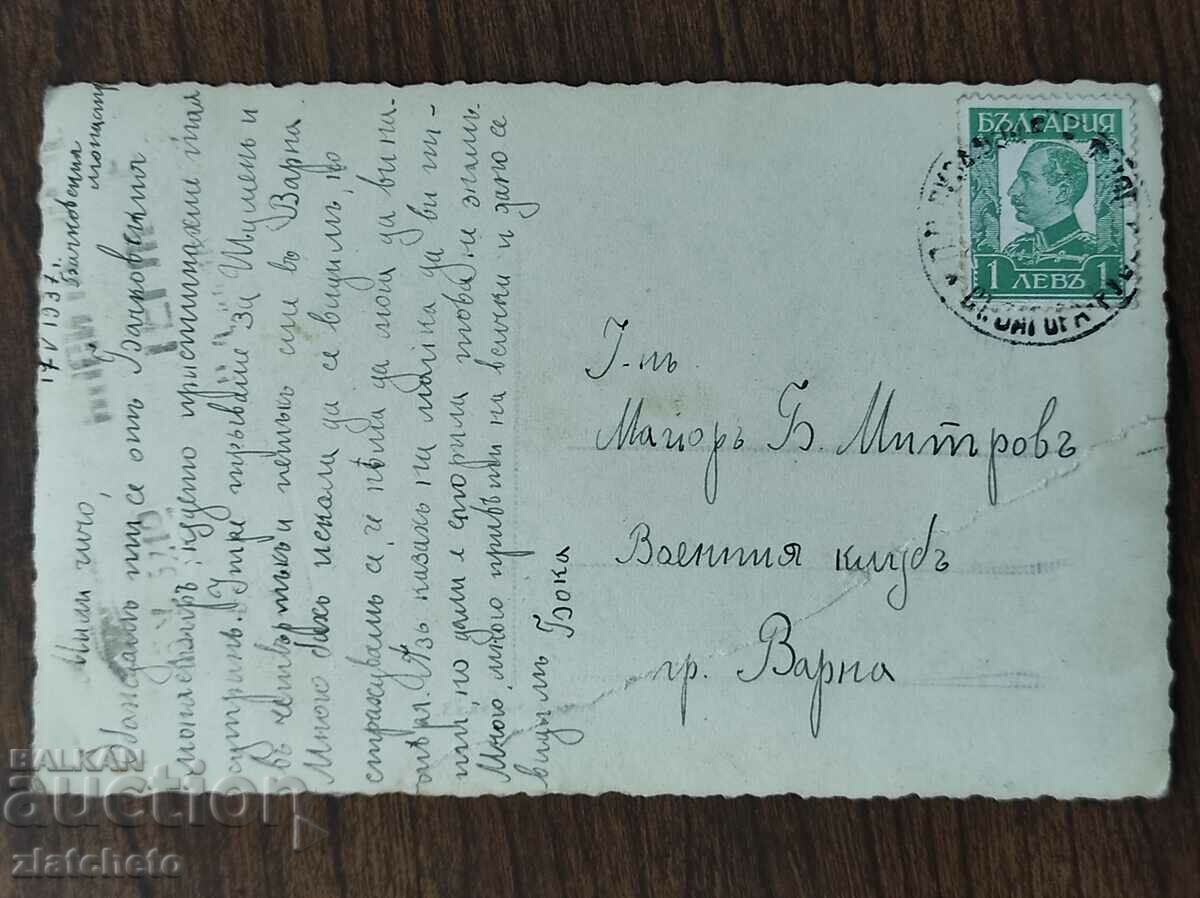 17 V 1937 г.
Бачковския
монастир
Мили чичо,
Обаждамъ ти се отъ Бачковския
монастиръ, кѫдето пристигнахме тая
сутринь. Утре тръгваме за Шуменъ и
въ четвъртъкъ и петъкъ сме въ Варна
Много бихъ искала да се видимъ, но
страхувамъ се, че нѣма да мога да ви на-
мѣря. Азъ казахъ на майка да ви пи-
ше, но дали е сторила това, не знамъ.
Много, много привѣти на всички и дано се
видимъ Бока
БЪЛГАРИЯ
1 ЛЕВЪ 1
СТ. ЗАГОРА
Г-нъ
Майоръ Б. Митровъ
Военния клубъ
гр. Варна
BALKAN
auction
zlatcheto